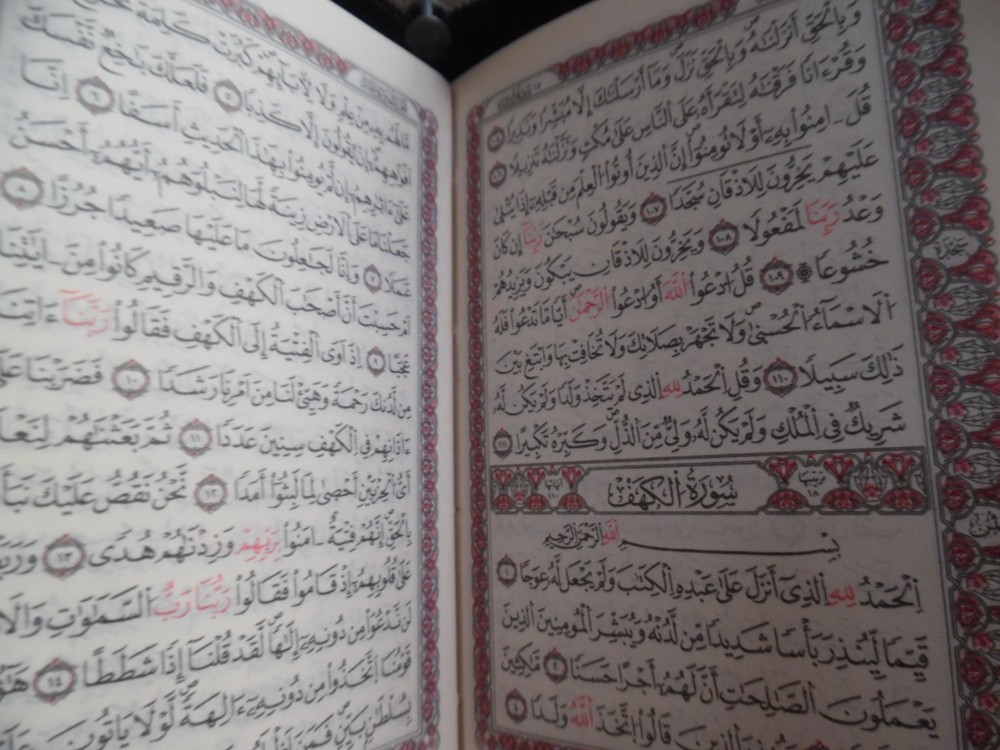 وَبِالْحَقِّ أَنزَلْنَٰهُ وَبِالْحَقِّ نَزَلَ وَمَا أَرْسَلْنَٰكَ إِلَّا مُبَشِّرًا وَنَذِيرًا
وَقُرْءَانًا فَرَقْنَٰهُ لِتَقْرَأَهُ عَلَى النَّاسِ عَلَىٰ مُكْثٍ وَنَزَّلْنَٰهُ تَنزِيلًا
قُلَ ـ امِنُوا بِهِ أَوْ لَا تُومِنُوا إِنَّ الذِينَ أُوتُوا الْعِلْمَ مِن قَبْلِهِ إِذَا يُتْلَىٰ
عَلَيْهِمْ يَخِرُّونَ لِلَاذْقَانِ سُجَّدًا ١٠٧ وَيَقُولُونَ سُبْحَٰنَ رَبِّنَا إِن كَانَ
وَعْدُ رَبِّنَا لَمَفْعُولًا ١٠٨ وَيَخِرُّونَ لِلَاذْقَانِ يَبْكُونَ وَيَزِيدُهُمْ
خُشُوعًا ١٠٩ ۞ قُلُ ادْعُوا اللَّهَ أَوُ ادْعُوا الرَّحْمَٰنَ أَيًّا مَّا تَدْعُوا فَلَهُ
الَاسْمَاءُ الْحُسْنَىٰ وَلَا تَجْهَرْ بِصَلَاتِكَ وَلَا تُخَافِتْ بِهَا وَابْتَغِ بَيْنَ
ذَٰلِكَ سَبِيلًا ١١٠ وَقُلِ الْحَمْدُ لِلهِ الذِي لَمْ يَتَّخِذْ وَلَدًا وَلَمْ يَكُن لَّهُ
شَرِيكٌ فِي الْمُلْكِ وَلَمْ يَكُن لَّهُ وَلِيٌّ مِّنَ الذُّلِّ وَكَبِّرْهُ تَكْبِيرًا ١١١
سُورَةُ الْكَهْفِ
بِسْمِ اللهِ الرَّحْمَٰنِ الرَّحِيمِ
اِلْحَمْدُ لِلهِ الذِي أَنزَلَ عَلَىٰ عَبْدِهِ الْكِتَٰبَ وَلَمْ يَجْعَل لَّهُ عِوَجًا ١
قَيِّمًا لِّيُنذِرَ بَأْسًا شَدِيدًا مِّن لَّدُنْهُ وَيُبَشِّرَ الْمُومِنِينَ الذِينَ
يَعْمَلُونَ الصَّٰلِحَٰتِ أَنَّ لَهُمُ أَجْرًا حَسَنًا ٢ مَّٰكِثِينَ
الذِينَ قَالُوا اتَّخَذَ اللَّهُ وَلَدًا ٤
مَّا لَهُم بِهِ مِنْ عِلْمٍ وَلَا لِأَبَائِهِمْ كَبُرَتْ كَلِمَةً
أَفْوَٰهِهِمُ إِن يَقُولُونَ إِلَّا كَذِبًا ٥ فَلَعَلَّكَ بَٰخِعٌ نَّفْسَكَ
عَلَىٰ ءَاثَٰرِهِمُ إِن لَّمْ يُومِنُوا بِهَٰذَا الْحَدِيثِ أَسَفًا ٦ اِنَّا
جَعَلْنَا مَا عَلَى الَارْضِ زِينَةً لَّهَا لِنَبْلُوَهُمُ أَيُّهُمُ أَحْسَنُ
عَمَلًا ٧ وَإِنَّا لَجَٰعِلُونَ مَا عَلَيْهَا صَعِيدًا جُرُزًا ٨
أَمْ حَسِبْتَ أَنَّ أَصْحَٰبَ الْكَهْفِ وَالرَّقِيمِ كَانُوا مِنَ ـ ايَٰتِنَا
عَجَبًا ٩ اِذَ اوَى الْفِتْيَةُ إِلَى الْكَهْفِ فَقَالُوا رَبَّنَا ءَاتِنَا
مِن لَّدُنكَ رَحْمَةً وَهَيِّئْ لَنَا مِنَ امْرِنَا رَشَدًا ١٠ فَضَرَبْنَا عَلَىٰ
ءَاذَانِهِمْ فِي الْكَهْفِ سِنِينَ عَدَدًا ١١ ثُمَّ بَعَثْنَٰهُمْ لِنَعْلَمَ
أَيُّ الْحِزْبَيْنِ أَحْصَىٰ لِمَا لَبِثُوا أَمَدًا ١٢ نَّحْنُ نَقُصُّ عَلَيْكَ نَبَأَهُم
بِالْحَقِّ إِنَّهُمْ فِتْيَةٌ ـ امَنُوا بِرَبِّهِمْ وَزِدْنَٰهُمْ هُدًى ١٣
عَلَىٰ قُلُوبِهِمُ إِذْ قَامُوا فَقَالُوا رَبُّنَا رَبُّ السَّمَٰوَٰتِ
لَن نَّدْعُوَا مِن دُونِهِ إِلَٰهًا لَّقَدْ قُلْنَا إِذًا شَطَطًا ١٤
قَوْمُنَا اتَّخَذُوا مِن دُونِهِ ءَالِهَةً لَّوْلَا يَاتُونَ
بِسُلْطَٰنٍ بَيِّنٍ فَمَنَ